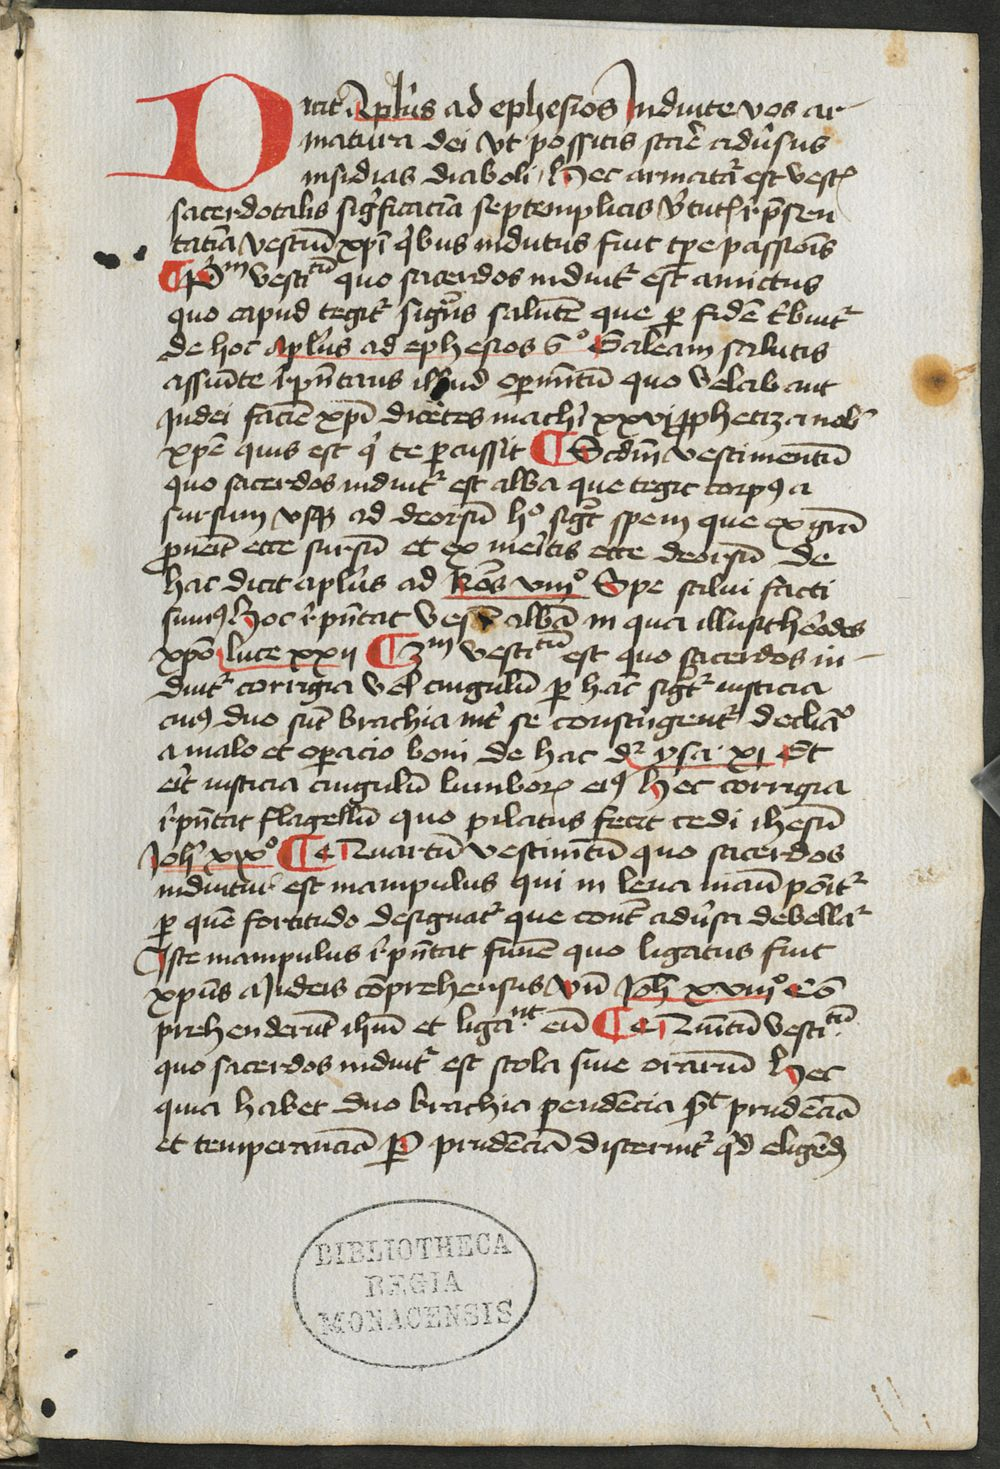 Dicit Aplūs ad ephesios Induite vos ar-
matura dei vt possitis starē adūsus
insidias diaboli Hec armatā est vestꝭ
sacerdotalis sigficatiā septemplicis v̄tutꝭ rp̄sen
tatiā vestiū xp̄i q̄bus indutus fuit tp̄e passiōis
¶ Pm̄ vestitū quo sacerdos induitᷣ est amictus
quo capud tegitᷣ salutē que ꝑ fidē tbuitᷣ
de hoc aplūs ad ephesios 6º Galeam salutis
assumte rp̄ntans illud opimtū quo velabant
Judei faciē xp̄i dicētes mathī xxvi ꝓphetiza nob̄
xp̄e quis est q̄ te ꝑcussit ¶ Scdm̄ vestimentū
quo sacerdos induitᷣ est alba que tegit corpꝰ a
sursum vsqꝫ ad deorsū hº sigt̄ spem que ex gr̄a
ꝓuēit ecce sursū et ex meīts ecce deorsū de
hac dicit aplūs ad Roōs viiiº Spe salui facti
sumꝰ Hoc rp̄ntat vestē albā in qua illusit herodes
xp̄o luce xxij ¶ 3m vestitū est quo sacerdos in-
duitᷣ corrigia vel cingulū ꝑ hac sigt̄ᷣ iusticia
cuiꝰ duo sūt brachia int̄ se constīgentᷣ declīaº
a malo et operacio boni de hac dᷣ ysa xj Et
eīt iusticia cingulū lumborꝝ eiꝰ Hec corrigia
rp̄ntat flagellū quo pilatus fecit cedi ihesū
Joh̄ xixº ¶ Quartū vestimtū quo sacerdos
induitur est manipulus qui in leua manū pōitᷣ
ꝑ quē fortitudo designatᷣ que cont̄ adūsa debellaᷣ
Iste manipulus rp̄ntat funē quo ligatus fuit
xpūs a Judeis cōprehensus vn̄ Joh̄ xviiiº Cō
prehenderūt ihm̄ et liga.nt eū ¶ Quintū vestitū
quo sacerdos induitᷣ est stola siue orariū Hec
quia habet duo brachia pendēcia st̄ prudēciā
et temperanciā Per prudēciā discernitᷣ qd̄ eligēdꝫ
BIBLIOTHECA
REGIA
MONACENSIS